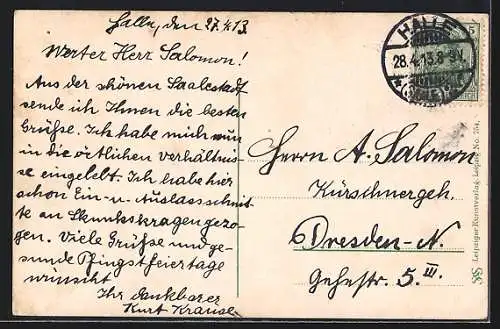 Halle, den 27.4.13
Werter Herr Salomon!
Aus der schönen Saalestadt
sende ich Ihnen die besten
Grüße. Ich habe mich nun
in die örtlichen verhältnis-
se eingelebt. Ich habe hier
schon Ein-u. Auslassschnit-
te an Skunkskragen gezo-
gen. Viele Grüße und ge-
sunde Pfingstfeiertage
wünscht
Ihr dankbarer
Kurt Krause
HALLE
28.4.13.8-9V.
*(SAALE)
5
Herrn A. Salomon
Kürschnergeh.
Dresden-N.
Gehestr. 5.III.
Leipziger Kunstverlag, Leipzig No.